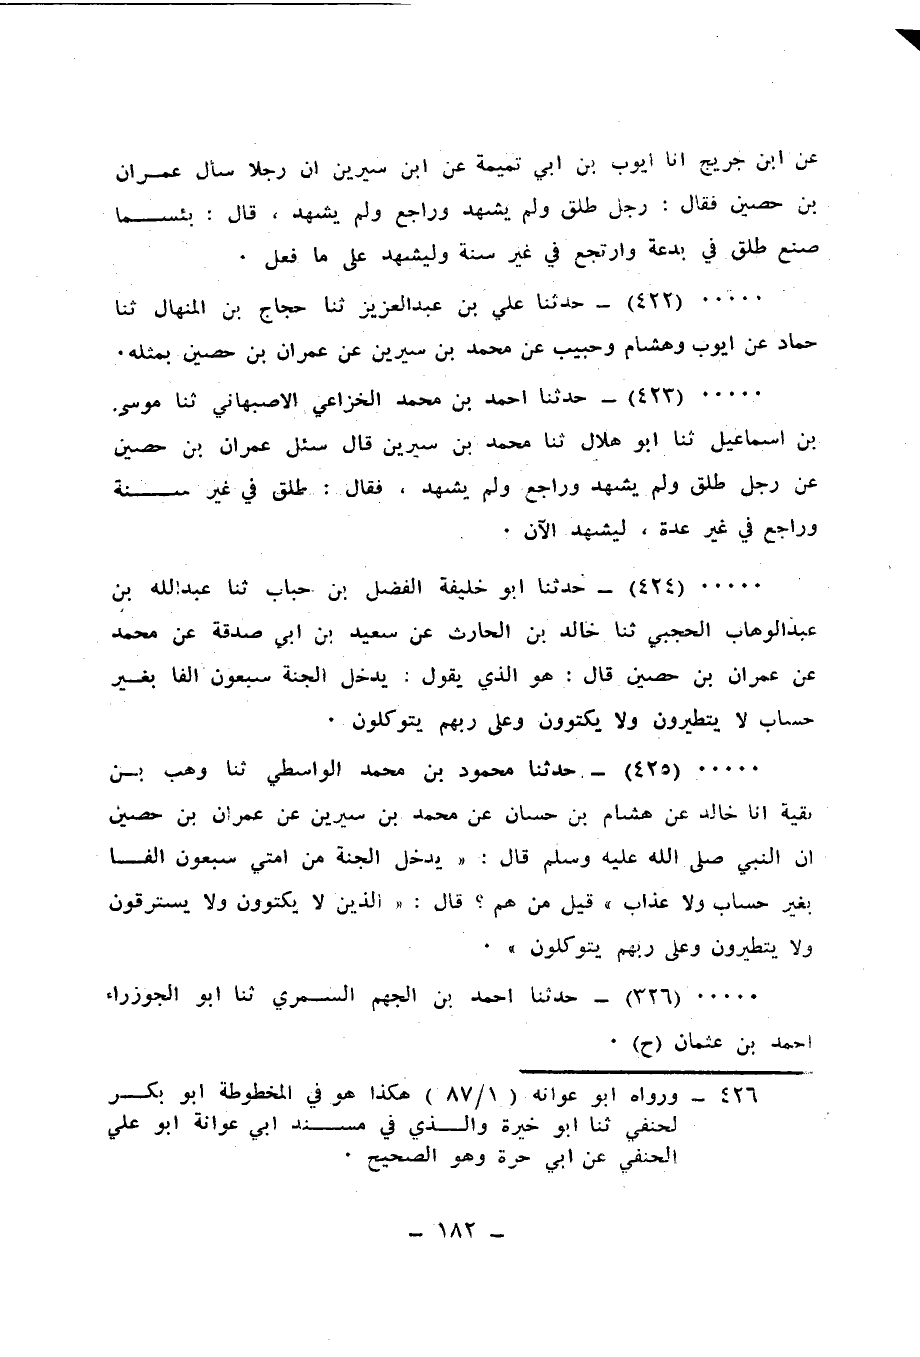 عن ابن جريج انا ايوب بن ابي تميمة عن ابن سيرين ان رجلا سأل عمران
بن حصين فقال : رجل طلق ولم يشهد وراجع ولم يشهد ، قال : بئسما
صنع طلق في بدعة وارتجع في غير سنة وليشهد على ما فعل ٠
٠٠٠٠٠ (٤٢٢) – حدثنا علي بن عبدالعزيز ثنا حجاج بن المنهال ثنا
حماد عن ايوب وهشام وحبيب عن محمد بن سيرين عن عمران بن حصين بمثله٠
٠٠٠٠٠ (٤٢٣) – حدثنا احمد بن محمد الخزاعي الاصبهاني ثنا موسى
بن اسماعيل ثنا ابو هلال ثنا محمد بن سيرين قال سئل عمران بن حصين
عن رجل طلق ولم يشهد وراجع ولم يشهد ، فقال : طلق في غير سنة
وراجع في غير عدة ، ليشهد الآن ٠
٠٠٠٠٠ (٤٢٤) – حدثنا ابو خليفة الفضل بن حباب ثنا عبدالله بن
عبدالوهاب الحجبي ثنا خالد بن الحارث عن سعيد بن ابي صدقة عن محمد
عن عمران بن حصين قال : هو الذي يقول : يدخل الجنة سبعون الفا بغير
حساب لا يتطيرون ولا يكتوون وعلى ربهم يتوكلون ٠
٠٠٠٠٠ (٤٢٥) – حدثنا محمود بن محمد الواسطي ثنا وهب بن
بقية انا خالد عن هشام بن حسان عن محمد بن سيرين عن عمران بن حصين
ان النبي صلى الله عليه وسلم قال : « يدخل الجنة من امتي سبعون الفا
بغير حساب ولا عذاب » قيل من هم ؟ قال : « الذين لا يكتوون ولا يسترقون
ولا يتطيرون وعلى ربهم يتوكلون » ٠
٠٠٠٠٠ (٣٢٦) – حدثنا احمد بن الجهم السمري ثنا ابو الجوزراء
احمد بن عثمان (ح) ٠
٤٢٦ – ورواه ابو عوانه ( ٨٧/١ ) هكذا هو في المخطوطة ابو بكر
لحنفي ثنا ابو خيرة والذي في مسند ابي عوانة ابو علي
الحنفي عن ابي حرة وهو الصحيح ٠
– ١٨٢ –